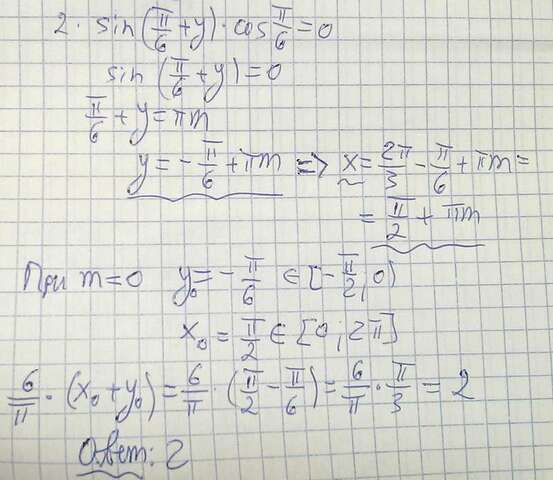 2 · sin(π/6 + y) · cos π/6 = 0
sin (π/6 + y) = 0
π/6 + y = πm
y = - π/6 + πm => x = 2π/3 - π/6 + πm =
= π/2 + πm
При m = 0 y₀ = - π/6 ∈ [- π/2, 0)
x₀ = π/2 ∈ [0; 2π]
6/π · (x₀ + y₀) = 6/π · (π/2 - π/6) = 6/π · π/3 = 2
Ответ: 2